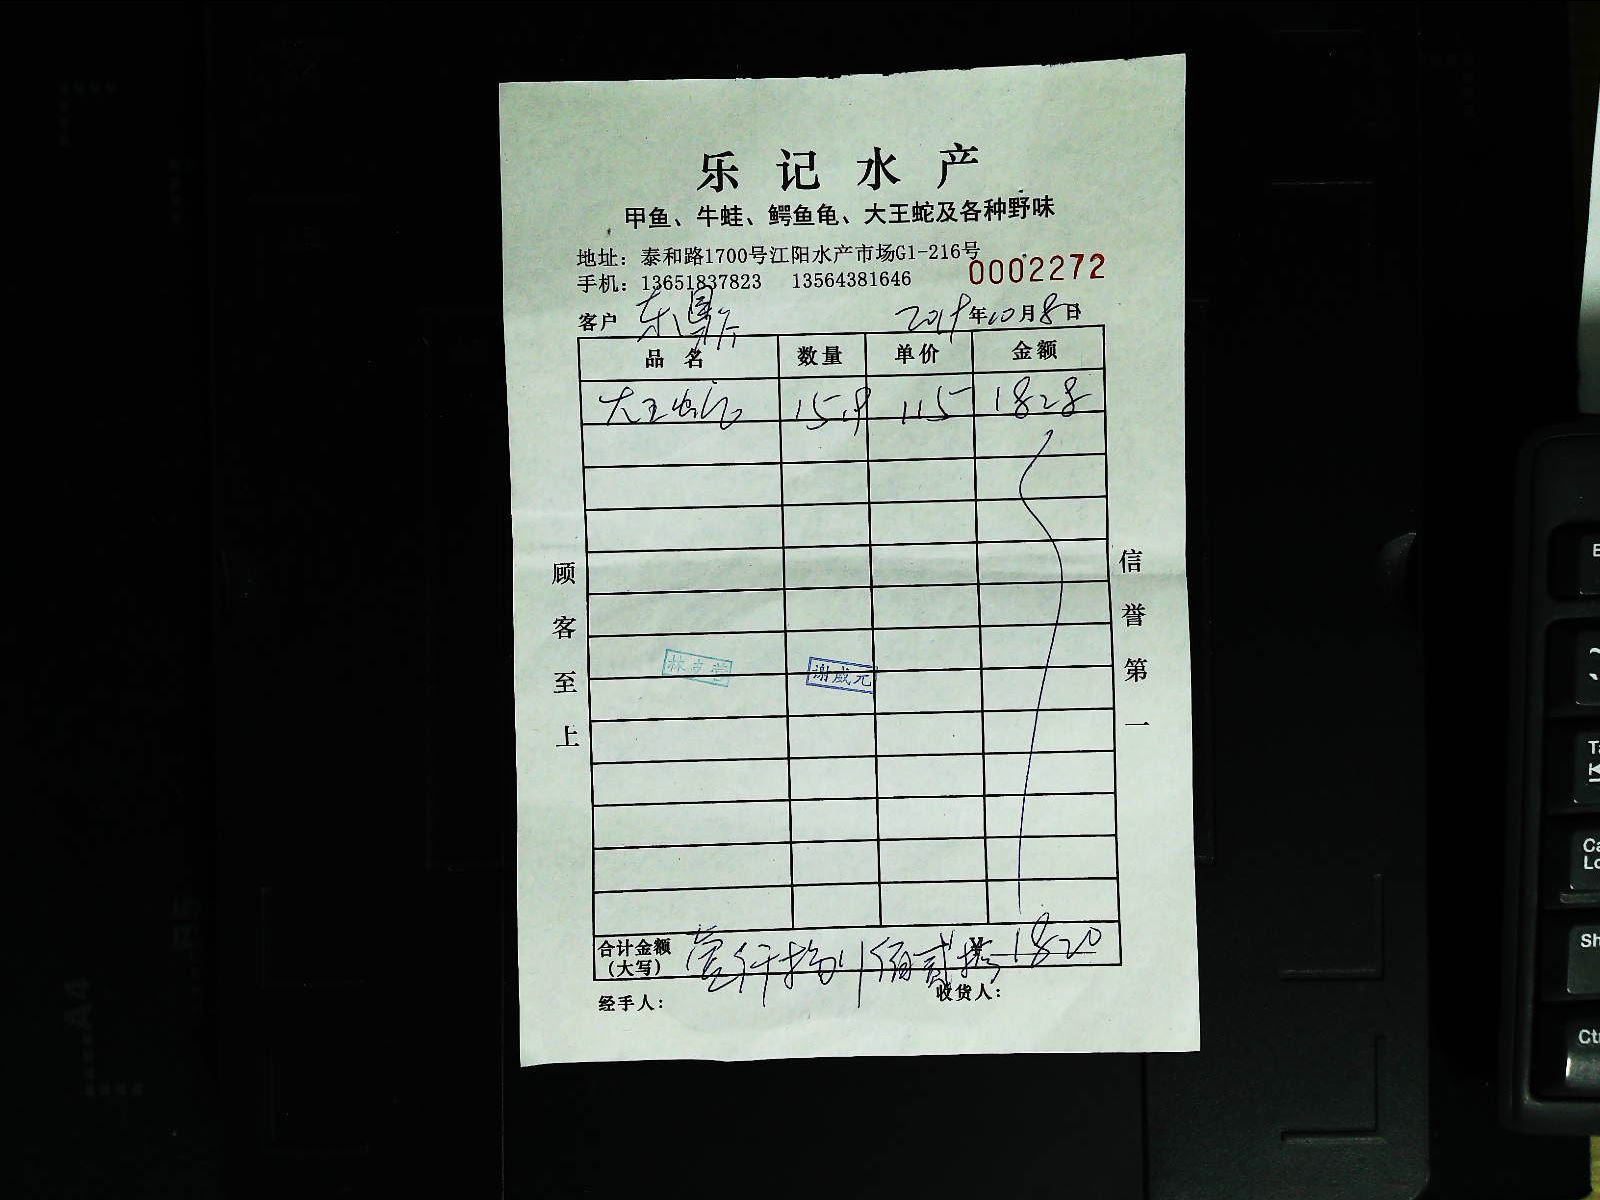 乐记水产
甲鱼、牛蛙、鳄鱼龟、大王蛇及各种野味
地址：泰和路1700号江阳水产市场G1-216号
手机：13651837823 13564381646
0002272
客户 2019年10月8日
品名 数量 单价 金额
大王蛇 15.9 115 1828
顾客至上
信誉第一
谢成元
合计金额(大写) 壹仟捌佰贰拾 1820
经手人： 收货人：
E
Ta
Ca
Lo
Sh
Ctr
A4